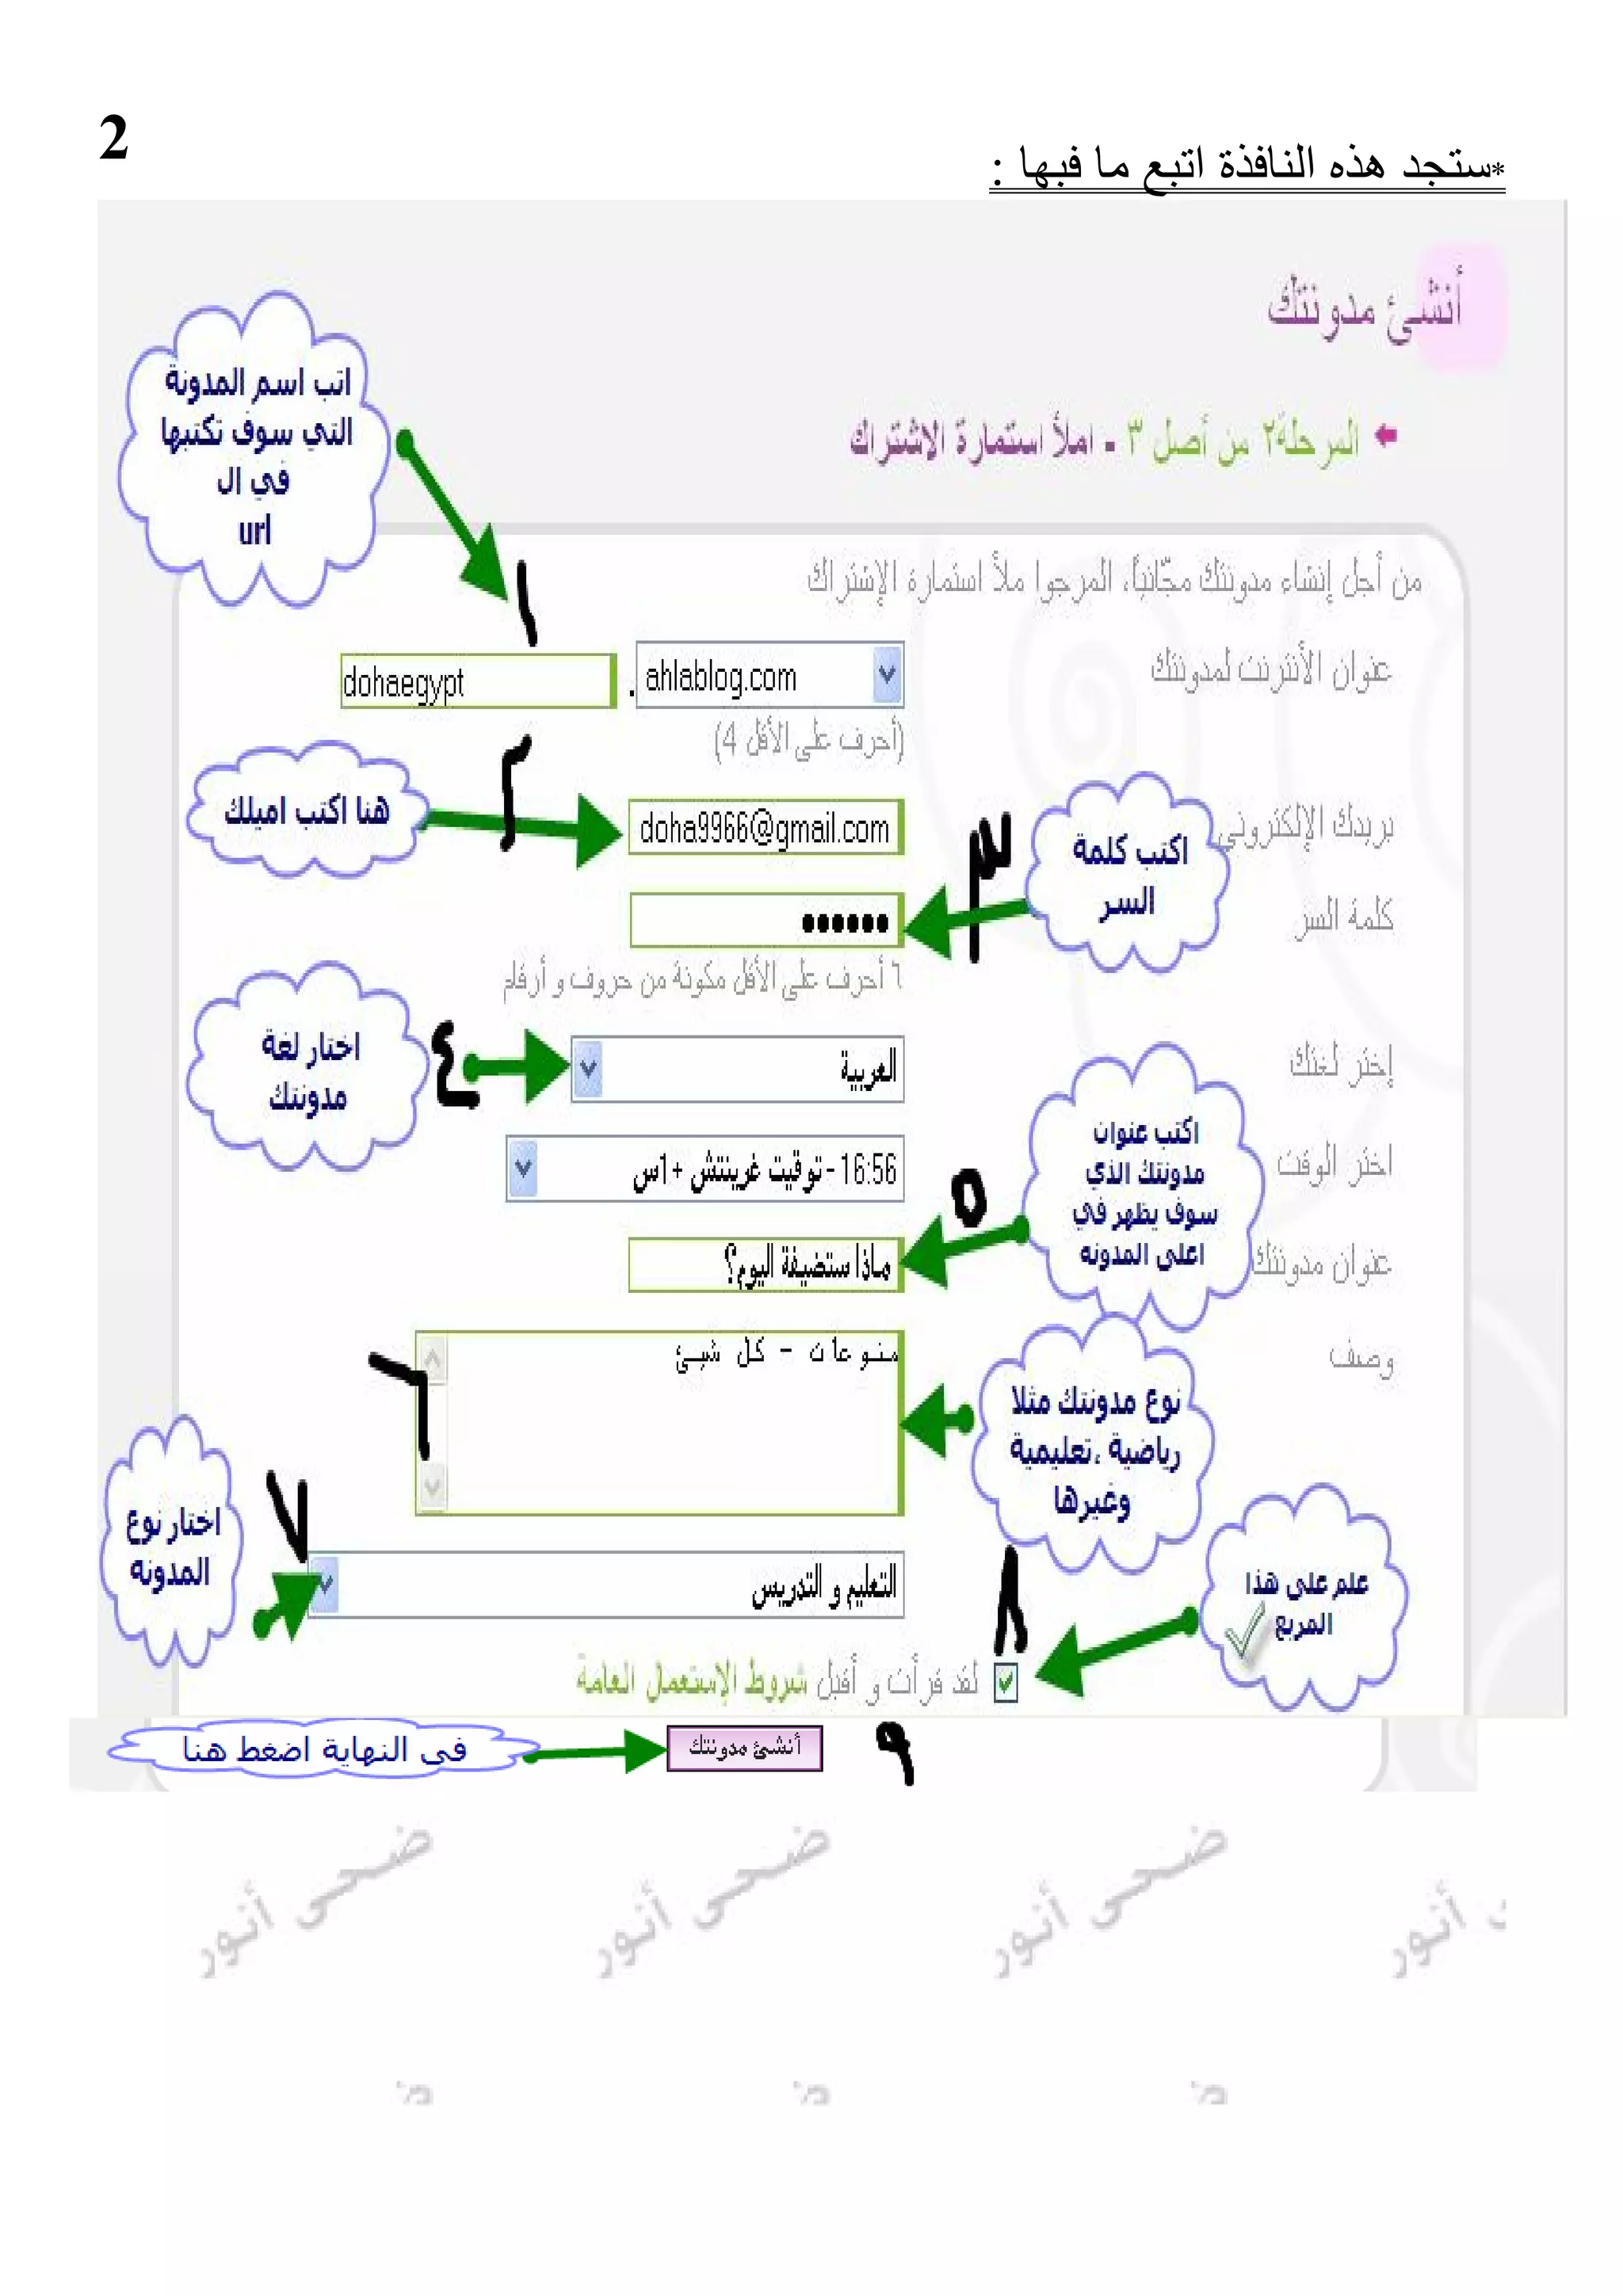 2
*ستجد هذه النافذة اتبع ما فبها :
أنشئ مدونتك
المرحلة٢ من أصل ٣ - املأ استمارة الاشتراك
اتب اسم المدونة
التي سوف تكتبها
في ال
url
من أجل إنشاء مدونتك مجّانيًا، المرجوا ملأ استمارة الإشتراك
١
عنوان الأنترنت لمدونتك
ahlablog.com
.
dohaegypt
(أحرف على الأقل 4)
هنا اكتب اميلك
٢
بريدك الإلكتروني
doha9966@gmail.com
اكتب كلمة
السر
٣
كلمة السر
••••••
٦ أحرف على الأقل مكونة من حروف و أرقام
اختار لغة
مدونتك
٤
إختر لغتك
العربية
اختر الوقت
16:56 - توقيت غرينتش +1س
اكتب عنوان
مدونتك الذي
سوف يظهر في
اعلى المدونه
٥
عنوان مدونتك
ماذا ستضيفة اليوم؟
وصف
منوعات - كل شيئ
٦
نوع مدونتك مثلا
رياضية ،تعليمية
وغيرها
اختار نوع
المدونه
٧
التعليم و التدريس
علم على هذا
المربع
٨
لقد قرأت و أقبل شروط الإستعمال العامة
فى النهاية اضغط هنا
أنشئ مدونتك
٩
ضحى أنور
ضحى أنور
ضحى أنور
أنور